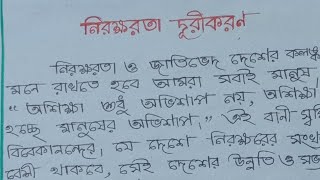 নিরক্ষরতা দূরীকরণ
নিরক্ষরতা ও জাতিভেদ দেশের কলঙ্ক
মনে রাখতে হবে আমরা সবাই মানুষ
“অশিক্ষা শুধু অভিশাপ নয়, অশিক্ষা
হচ্ছে মানুষের অভিশাপ।” এই বানী
বিবেকানন্দের। যে দেশে নিরক্ষরের সংখ্যা
বেশী থাকবে, সেই দেশের উন্নতি ও